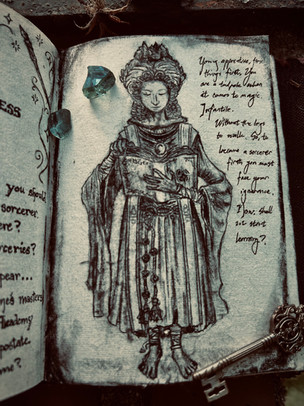 ESS
you should
sorcerer
ere?
rceries?
pear...
ned masters
Academy
postate
me?
Young apprentice, for
things first. You
are a tadpole when
it comes to magic.
Infantile.
Without the legs
to walk. So, to
become a sorcerer
first you must
face your
ignorance.
Now, shall
we start
learning?